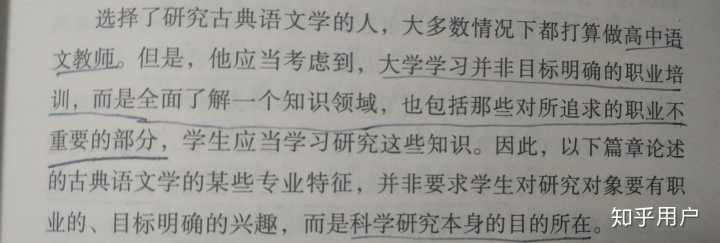 选择了研究古典语文学的人，大多数情况下都打算做高中语
文教师。但是，他应当考虑到，大学学习并非目标明确的职业培
训，而是全面了解一个知识领域，也包括那些对所追求的职业不
重要的部分，学生应当学习研究这些知识。因此，以下篇章论述
的古典语文学的某些专业特征，并非要求学生对研究对象要有职
业的、目标明确的兴趣，而是科学研究本身的目的所在。
知乎用户